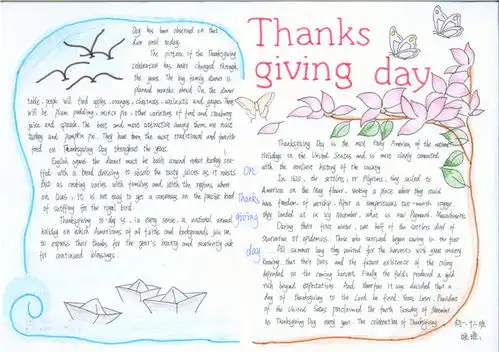 Thanks
giving day
Day has been observed on that
date until today.
The pattern of the Thanksgiving
celebration has never changed through
the years. The big family dinner is
planned months ahead. On the dinner
table, people will find apples, oranges, chestnuts, walnuts and grapes. There
will be plum pudding, mince pie, other varieties of food and cranberry
juice and squash. The best and most attractive among them are roast
turkey and pumpkin pie. They have been the most traditional and favorite
food on Thanksgiving Day throughout the years.
agrees the dinner must be built around roast turkey
with a bread dressing to absorb the tasty juices as it roasts
But as cooking varies with families and with the regions where
on lives. It is not easy to get a consensus on the precise kind
of stuffing for the royal bird.
Thanksgiving to day is, in every sense, a national annual
holiday on which Americans of all faith and backgrounds join in
to express their thanks for the year's bounty and reverently ask
for continued blessings.
On
Thanks
giving
day
Thanksgiving Day is the most truly American of the
Holidays in the United States and is most closely connected
with the earliest history of the country.
In 1620, the settlers, or Pilgrims, they sailed to
America on the May flower, seeking a place where they could
have freedom of worship. After a tempestuous two-month voyage
they landed at in icy November, what is now Plymouth, Massachusetts.
During their first winter, over half of the settlers died of
starvation or epidemics. Those who survived began sowing in the first
All summer long they waited for the harvests with great anxiety
knowing that their lives and the future existence of the colony
depended on the coming harvest. Finally the fields produced a yield
rich beyond expectations. And therefore it was decided that a
day of thanksgiving to the Lord be fixed. Years later, President
of the United States proclaimed the fourth Thursday of November
as Thanksgiving Day every year. The celebration of Thanksgiving